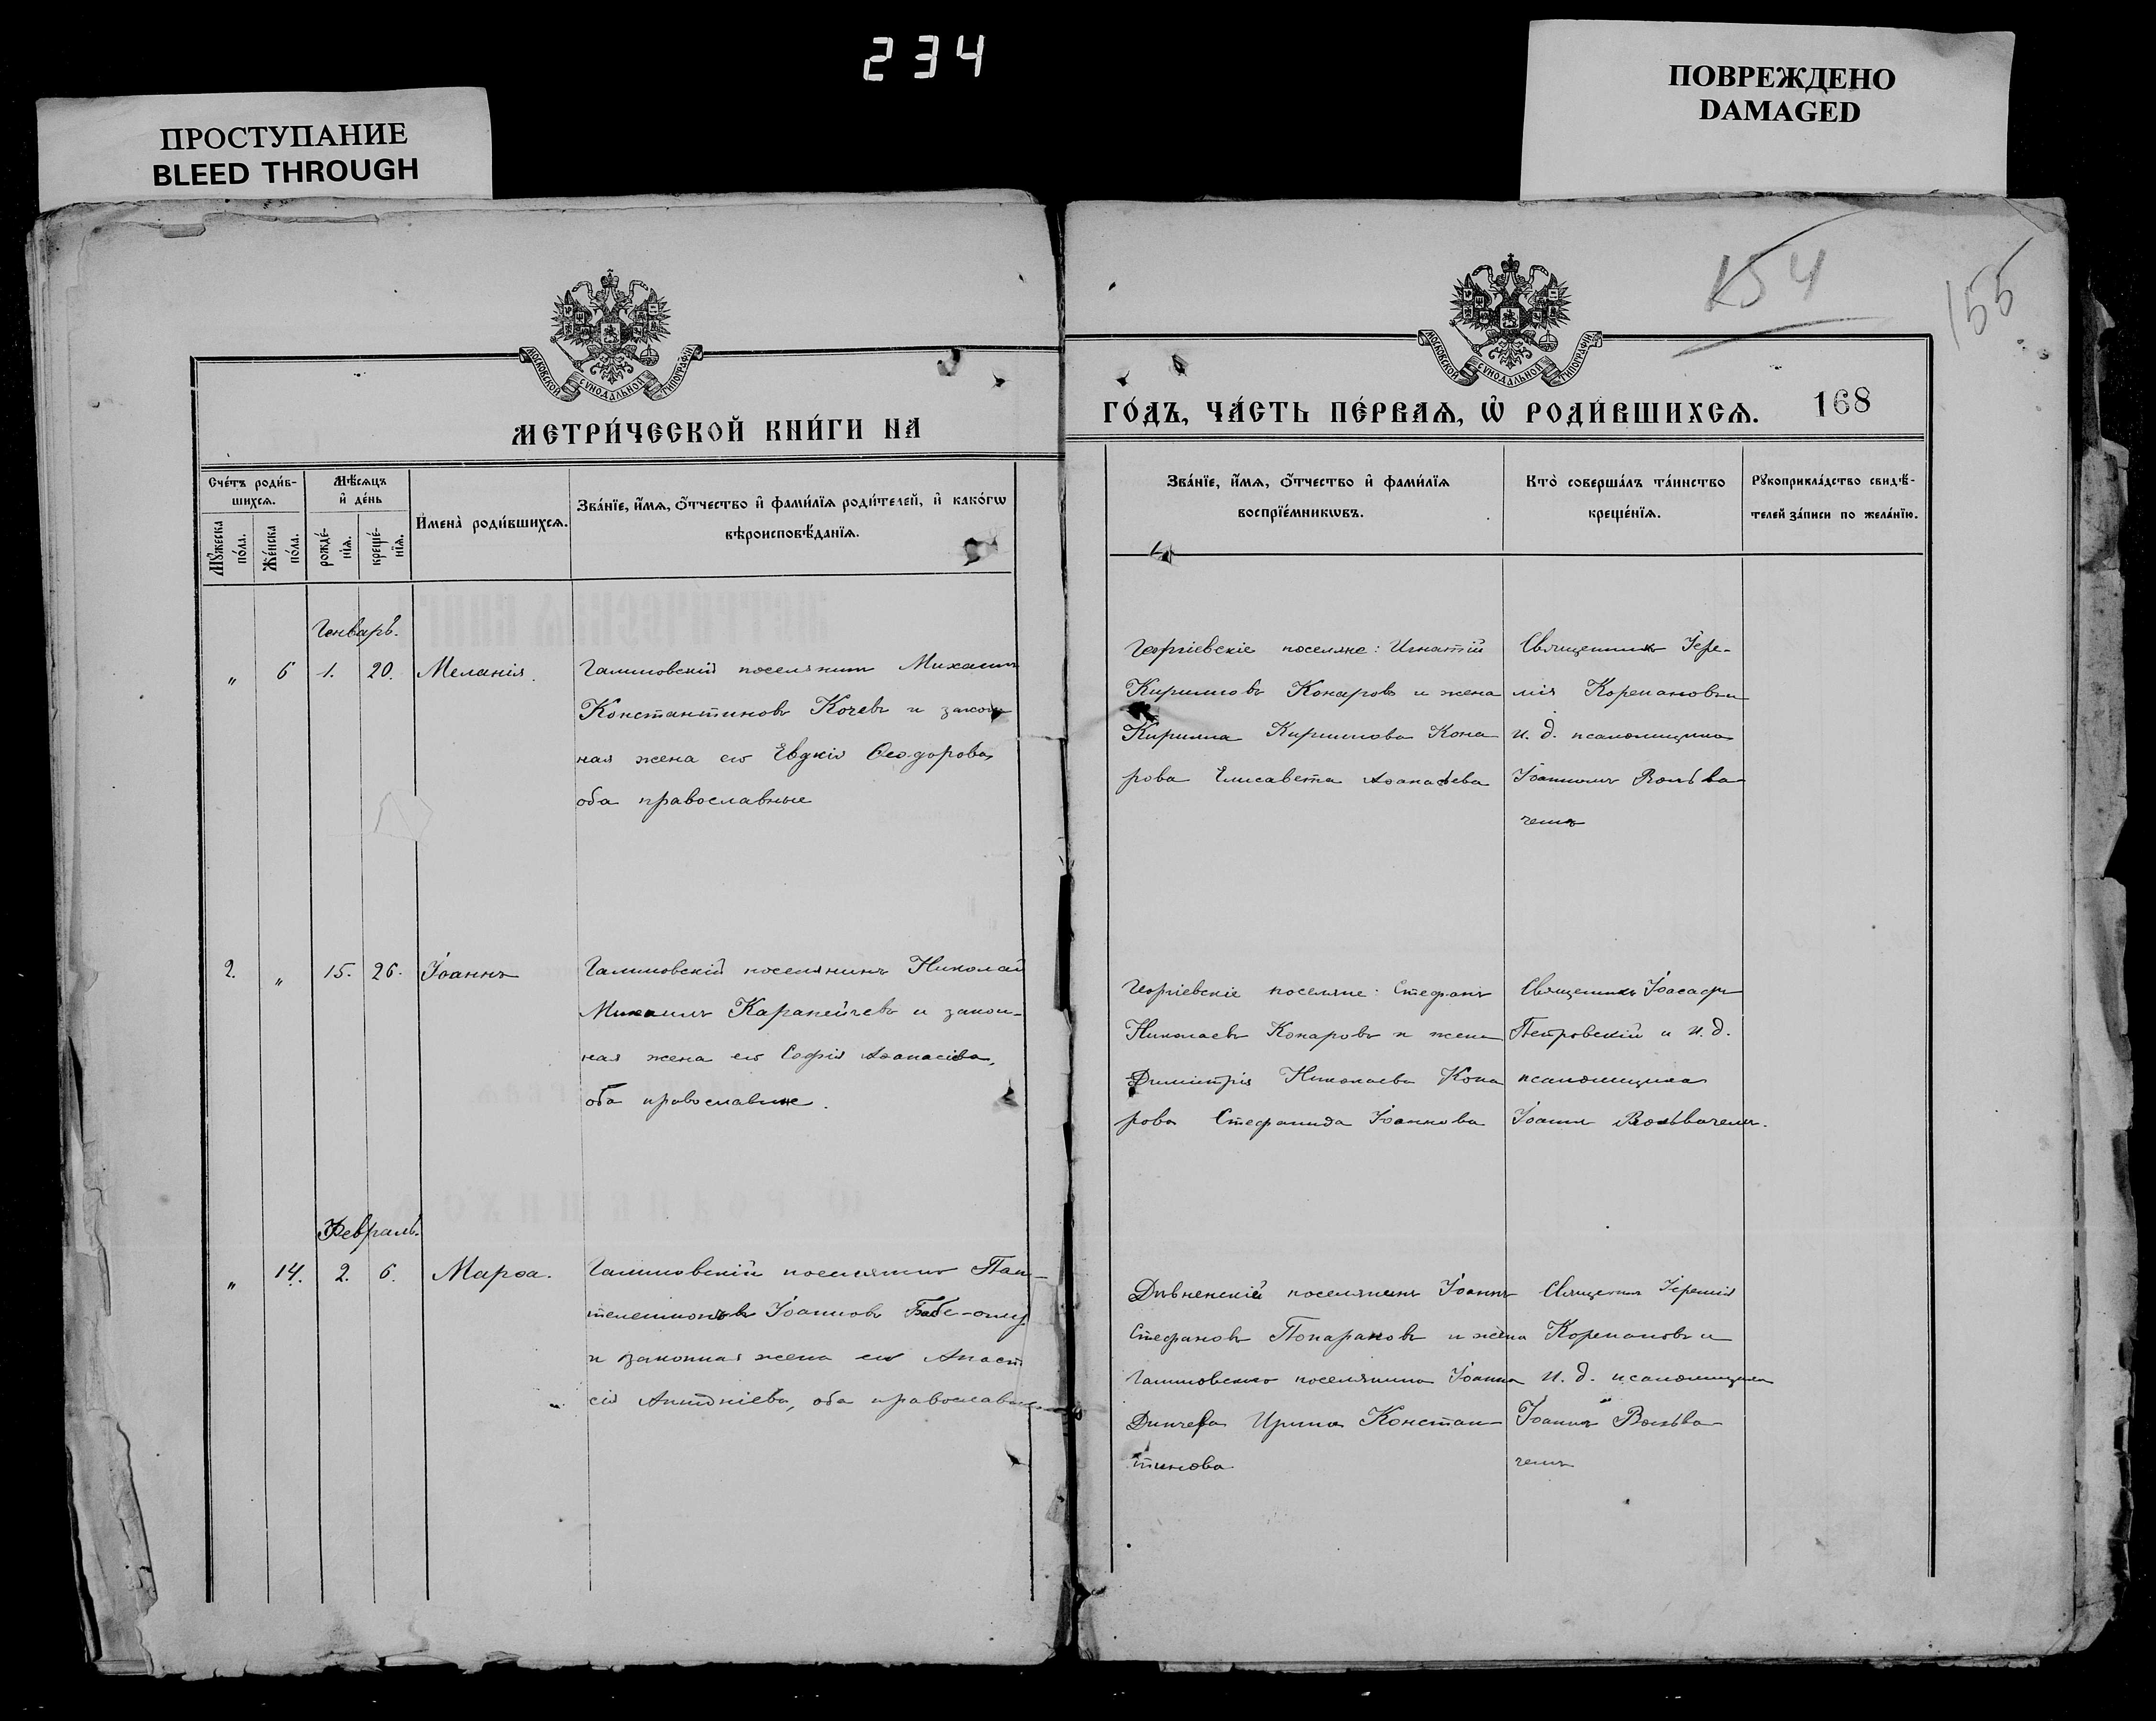 234
ПРОСТУПАНИЕ
BLEED THROUGH
ПОВРЕЖДЕНО
DAMAGED
154
155
МОСКОВСКОЙ СУНОДАЛЬНОЙ ТИПОГРАФІИ
МЕТРИ́ЧЕСКОЙ КНИ́ГИ НА
Сче́тъ роди́в-
шихсѧ.
Мꙋ́жеска по́ла.
Же́нска по́ла.
Мѣ́сѧцъ
и҆ де́нь
рожде́-
нїѧ.
креще́-
нїѧ.
И҆мена̀ роди́вшихсѧ.
Зва́нїе, и҆́мѧ, ѻ҆́тчество и҆ фами́лїѧ роди́телей, и҆ како́гѡ
вѣроисповѣ́данїѧ.
Генварь.
„ 6 1. 20. Меланія.
Галиновскій поселянинъ Михаилъ
Константиновъ Кочевъ и закон
ная жена его Евдкія Ѳеодорова,
оба православные
2. „ 15. 26. Іоаннъ
Галиновскій поселянинъ Николай
Михаилъ Карапейчевъ и закон-
ная жена его Софія Аѳанасіева,
оба православные.
Февраль.
„ 14. 2. 6. Марѳа.
Галиновскій поселянинъ Пан-
телеимонъ Іоанновъ
и законная жена его Анаст
сія Антоніева, оба православные
МОСКОВСКОЙ СУНОДАЛЬНОЙ ТИПОГРАФІИ
ГО́ДЪ, ЧА́СТЬ ПЕ́РВАѦ, Ѡ҆ РОДИ́ВШИХСѦ. 168
Зва́нїе, и҆́мѧ, ѻ҆́тчество и҆ фами́лїѧ
воспрїе́мникѡвъ.
Кто̀ соверша́лъ та́инство
креще́нїѧ.
Рꙋкоприкла́дство свидѣ́-
телей за́писи по жела́нїю.
Георгіевскіе поселяне: Игнатій
Кирилловъ Конаровъ и жена
Кирилла Кириллова Кона
рова Елисавета Аѳанасіева
Священникъ Іере-
мія Корепановъ и
и. д. псаломщика
Іоанномъ Вольва
чемъ
Георгіевскіе поселяне: Стефанъ
Николаевъ Конаровъ и жена
Димитрія Николаева Кона
рова Стефанида Іоаннова
Священникъ Іоасафъ
Петровскій и и. д.
псаломщика
Іоанн Вольвачемъ.
Дѣвненскій поселянинъ Іоаннъ
Стефановъ Попаразовъ и жена
Галиновскаго поселянина Іоанна
Динчева Ирина Констан-
тинова
Священникъ Іеремія
Корепановъ и
и. д. псаломщика
Іоаннъ Вольва
чемъ